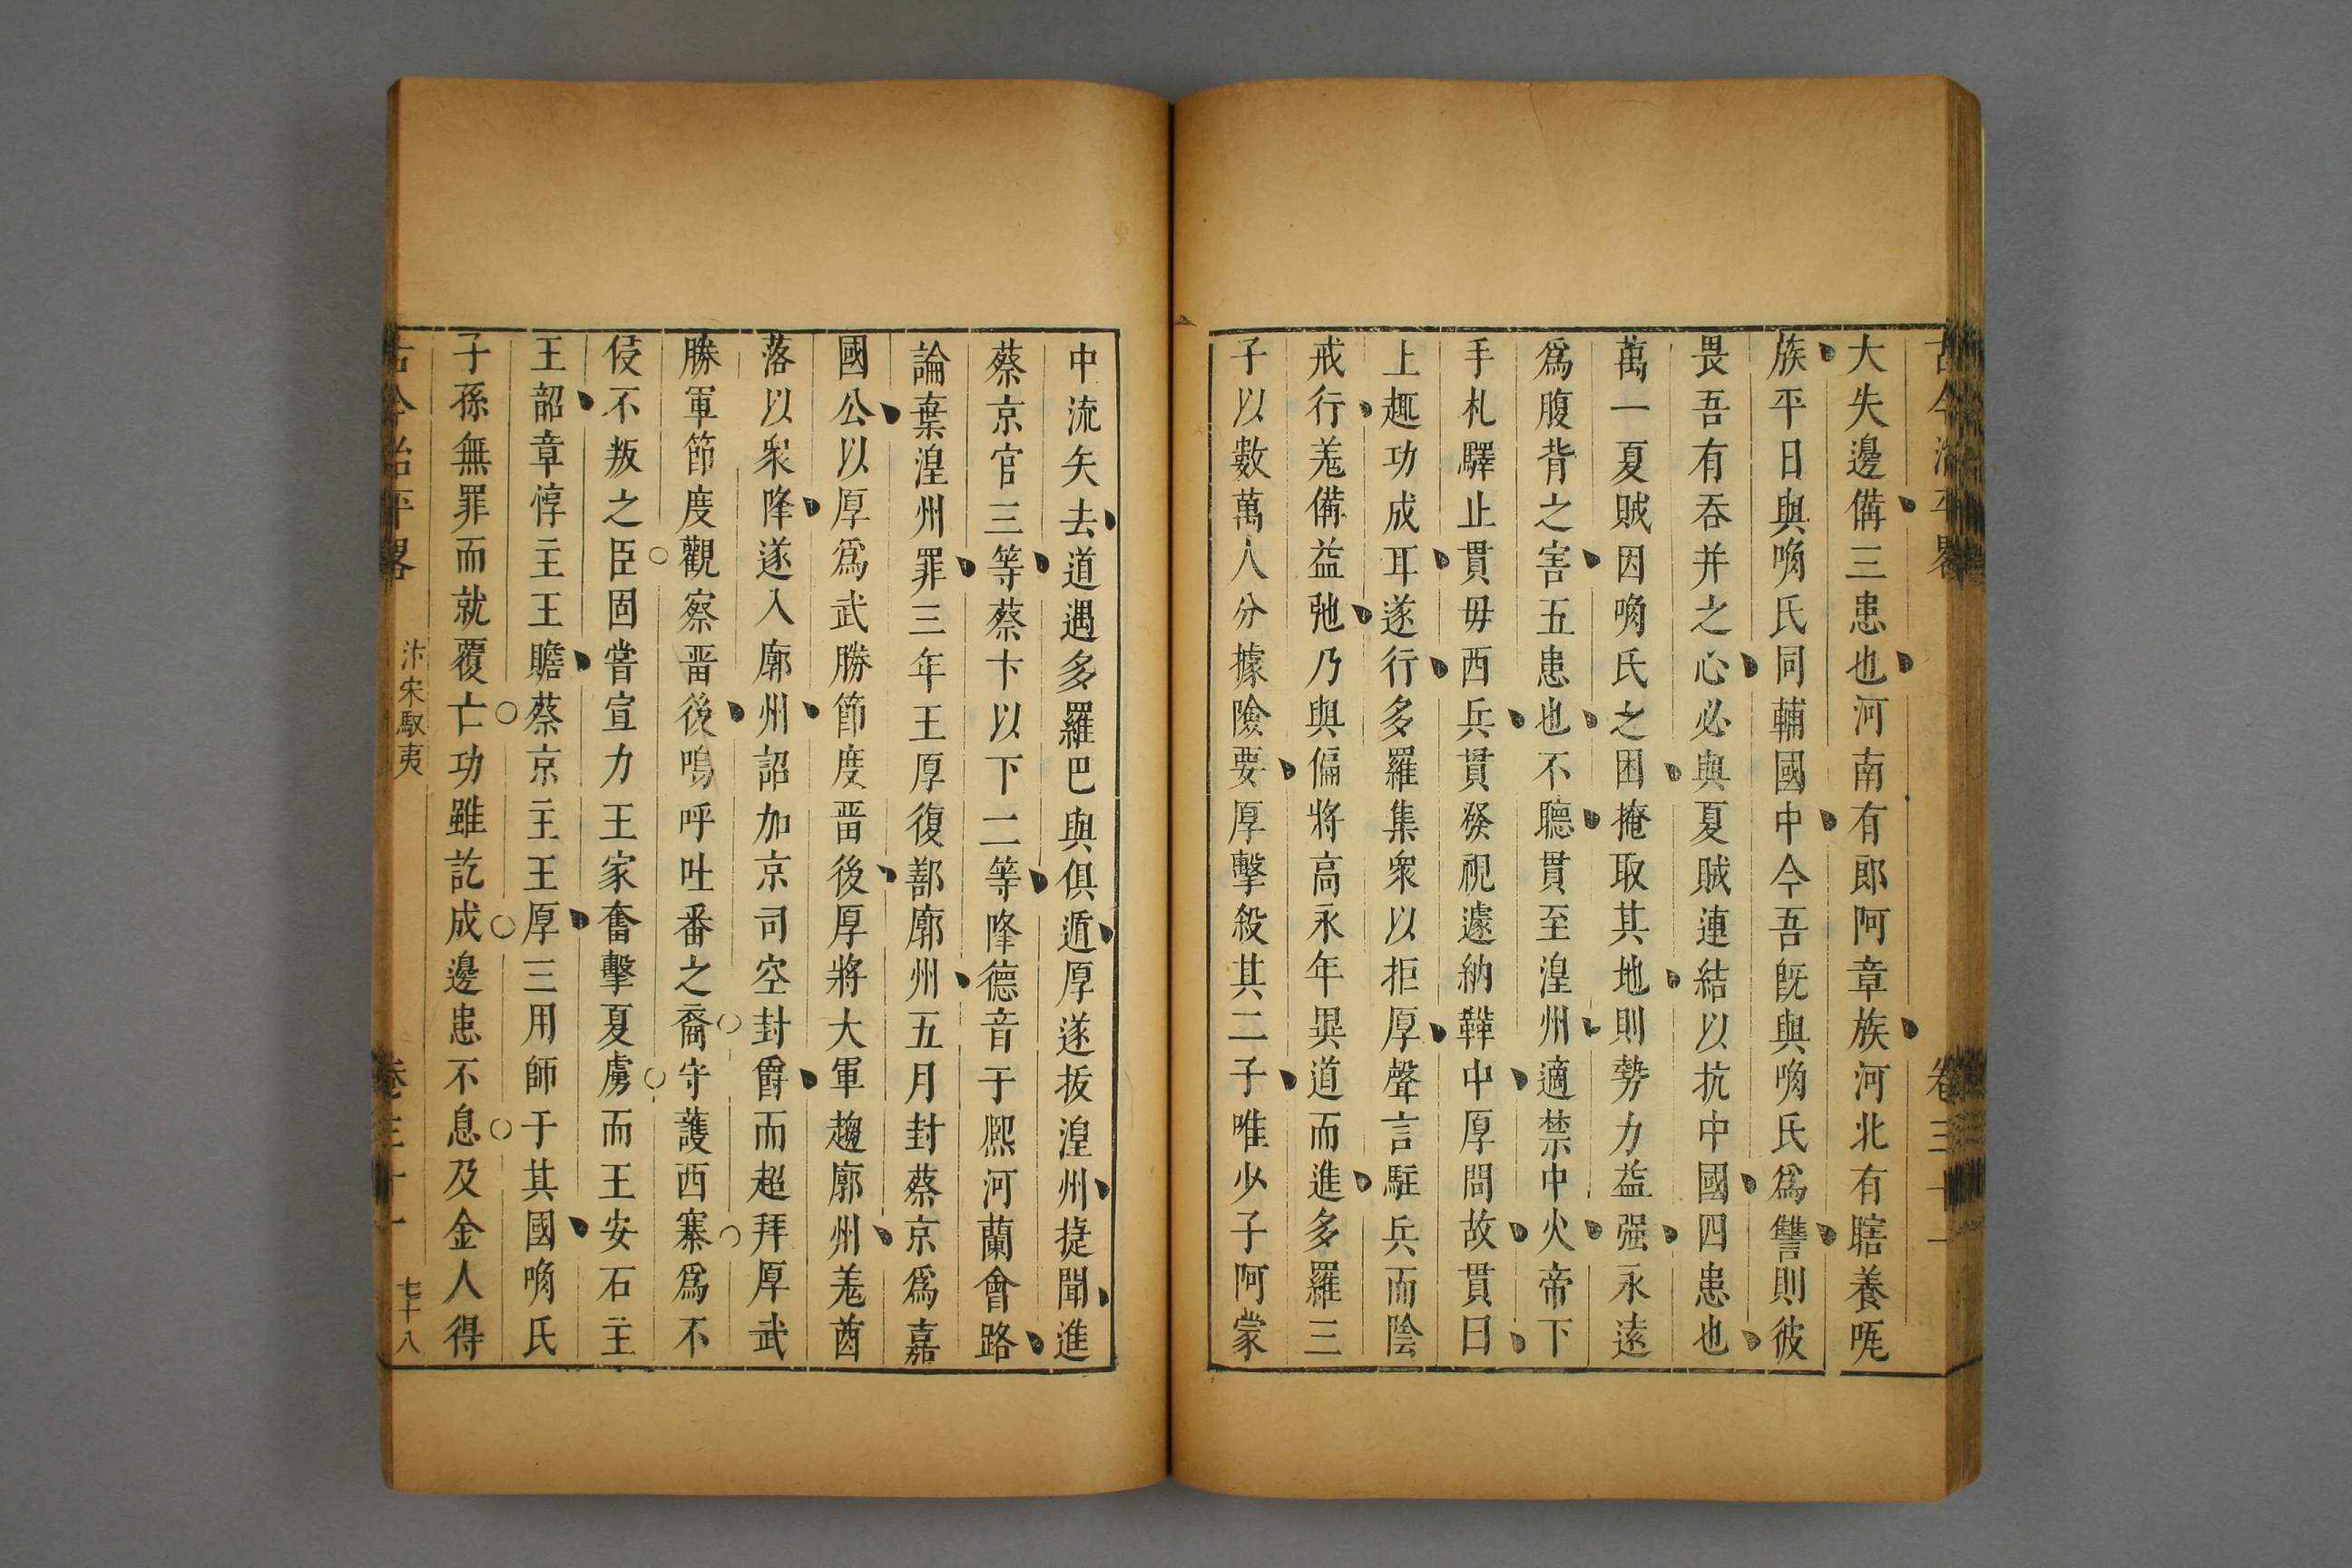 大失邊備三患也河南有郎阿章族河北有瞎養咓
族平日與唃氏同輔國中今吾旣與唃氏爲讐則彼
畏吾有吞并之心必與夏賊連結以抗中國四患也
萬一夏賊因唃氏之困掩取其地則勢力益强永遠
爲腹背之害五患也不聽貫至湟州適禁中火帝下
手札驛止貫毋西兵貫發視遽納鞾中厚問故貫曰
上趣功成耳遂行多羅集衆以拒厚聲言駐兵而陰
戒行羌備益弛乃與偏將高永年異道而進多羅三
子以數萬人分據險要厚擊殺其二子唯少子阿蒙
中流矢去道遇多羅巴與俱遁厚遂拔湟州捷聞進
蔡京官三等蔡卞以下二等降德音于熙河蘭會路
論棄湟州罪三年王厚復鄯廓州五月封蔡京爲嘉
國公以厚爲武勝節度畱後厚將大軍趨廓州羌酋
落以衆降遂入廓州詔加京司空封爵而超拜厚武
勝軍節度觀察畱後嗚呼吐番之裔守護西寨爲不
侵不叛之臣固嘗宣力王家奮擊夏虜而王安石主
王韶章惇主王贍蔡京主王厚三用師于其國唃氏
子孫無罪而就覆亡功雖訖成邊患不息及金人得
古今治平畧 汴宋馭夷 卷三十一 七十八